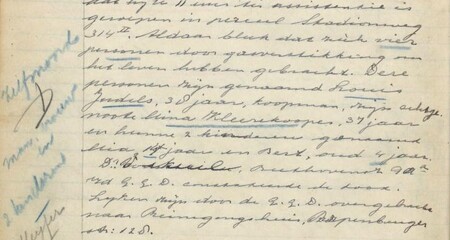 dat hij te 11 uur ter assistentie is
geroepen in perceel Stadionweg
314 II. Aldaar bleek dat zich vier
personen door gasverstikking om
het leven hebben gebracht. Deze
personen zijn genaamd Louis
Joodels, 38 jaar, koopman, zijn echtge-
noote Mina Kleerekooper, 37 jaar
en hunne 2 kinderen genaamd
14 jaar en Bert, oud 4 jaar.
Dr. Beethovenstr
v/d G.G.D. constateerde de dood.
Lijken zijn door de G.G.D. overgebracht
naar Reinigingshuis,
str: 128.
Zelfmoord
man, vrouw
en
2 kinderen